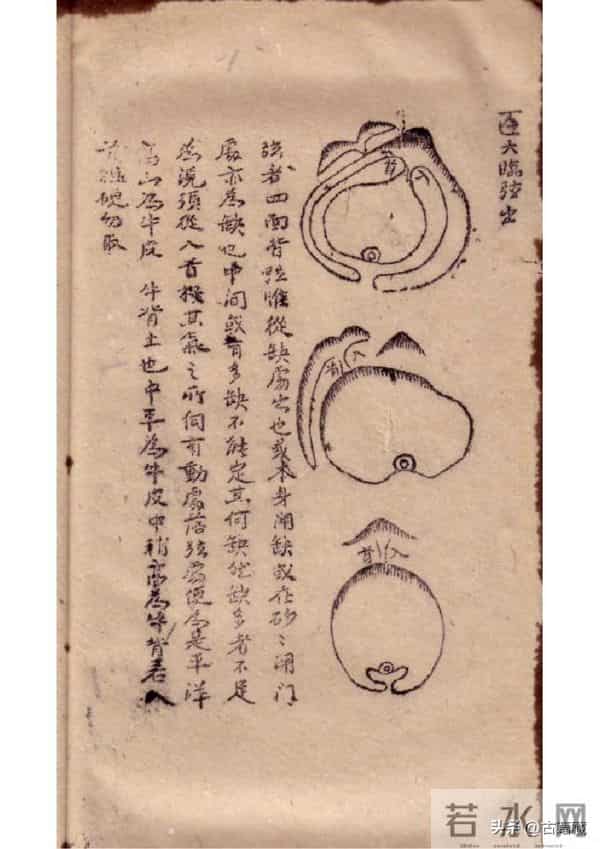 大臨弦出
入首
弦者四面皆弦惟從缺處出也或本身開缺或在砂〻開門
處亦為缺也中间或有多缺不能定其何缺缺多者不足
為说須從入首接其氣之所伺有動處落弦處便為是平洋
高山為牛皮 牛背土也中平為牛皮中稍高為牛背若入
首硬勿取
入首
入首
若水网
头条@古籍